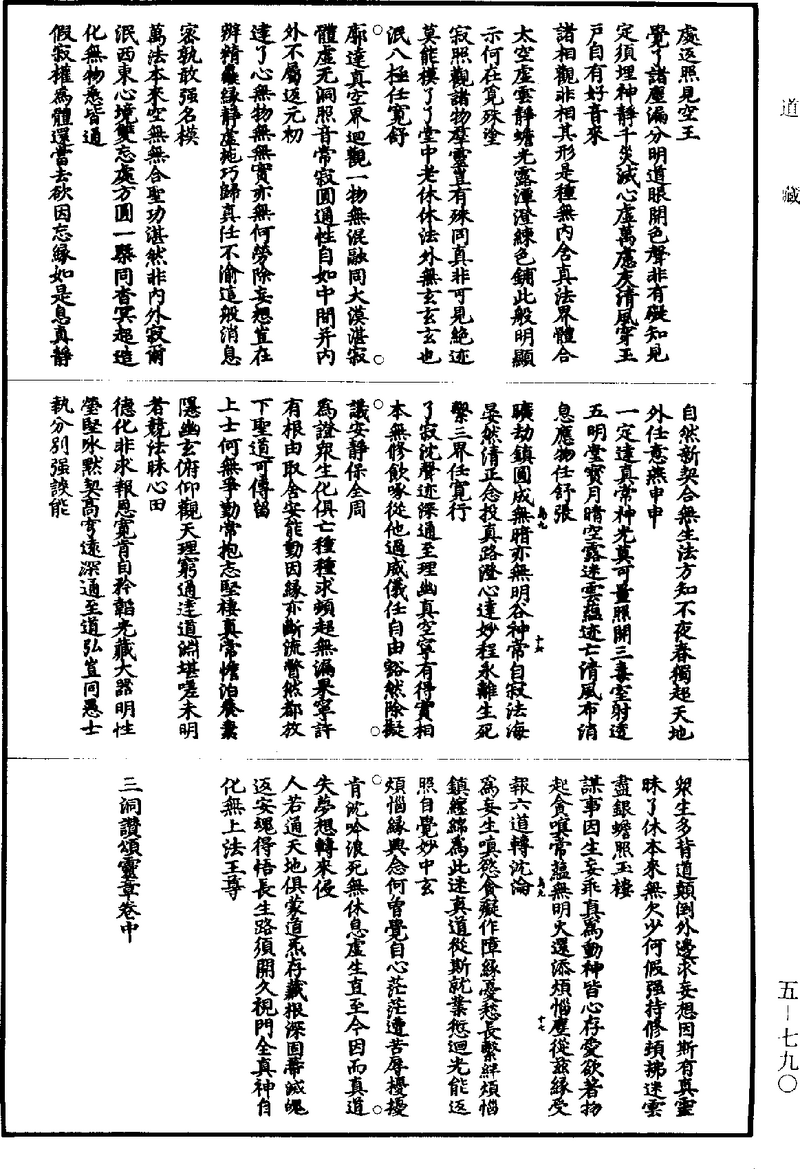 道藏
處返照見空王
覺了諸塵漏分明道眼開色聲非有礙知見
定須埋神靜千災滅心虛萬慮灰清風穿玉
戶自有好音來
諸相觀非相其形是種無內含真法界體合
太空虛雲靜蟾光露潭澄練色鋪此般明顯
示何在覓殊塗
寂照觀諸物羣靈豈有殊同真非可見絕迹
莫能樓了了堂中老休休法外無玄玄玄也
泯八極任寬舒
廓達真空界迴觀一物無混融同大漠湛寂
體虛無洞照音常寂圓通性自如中間并內
外不屬返元初
達了心無物無無實亦無何勞除妄想豈在
辯精麤緣靜虛施巧歸真任不渝這般消息
密孰敢强名模
萬法本來空無無合聖功湛然非內外寂爾
泯西東心境雙忘處方圓一檗同杳冥超造
化無物悉皆通
假寂權為體還當去欲因忘緣如是息真靜
自然新契合無生法方知不夜春獨超天地
外任意燕申申
一定達真常神光莫可量照開三毒室射透
五明堂寶月晴空露迷雲蘊迹亡清風布消
息應物任舒張
曠劫鎮圓成無暗亦無明谷神常自寂法海
晏然清正念投真路澄心達妙程永離生死
繫三界任寬行
了寂沈聲迹深通至理幽真空寧有得實相
本無修飲啄從他過威儀任自由豁然除擬
議安靜保全周
為證衆生化俱亡種種求頓超無漏果寧許
有根由取舍安能動因緣亦斷流瞥然都放
下聖道可傳留
上士何無爭勤常抱志堅棲真常憺泊養素
隱幽玄俯仰觀天理窮通達道淵堪嗟未明
者競法昧心田
德化非求報恩寬肯自矜韜光藏大器明性
瑩堅冰默契高穹遠深通至道弘豈同愚士
執分別强談能
衆生多背道顛倒外邊求妄想因斯有真靈
昧了休本來無欠少何假强持修頓拂迷雲
盡銀蟾照玉樓
謀事因生妄乖真為動神皆心存愛欲著物
起貪嗔常蘊無明火還添煩惱塵從兹緣受
報六道轉沈淪
為妄生嗔慾貪癡作障緣憂愁長繫絆煩惱
鎮纏綿為此迷真道從斯就業愆迴光能返
照自覺妙中玄
煩惱緣興念何曾覺自心茫茫遭苦辱擾擾
肯沈吟浪死無休息虛生直至今因而真道
失夢想轉來侵
人若通天地俱蒙道炁存藏根深固蔕滅魄
返安魂得悟長生路須開久視門全真神自
化無上法王尊
三洞讚頌靈章卷中
五－七九〇